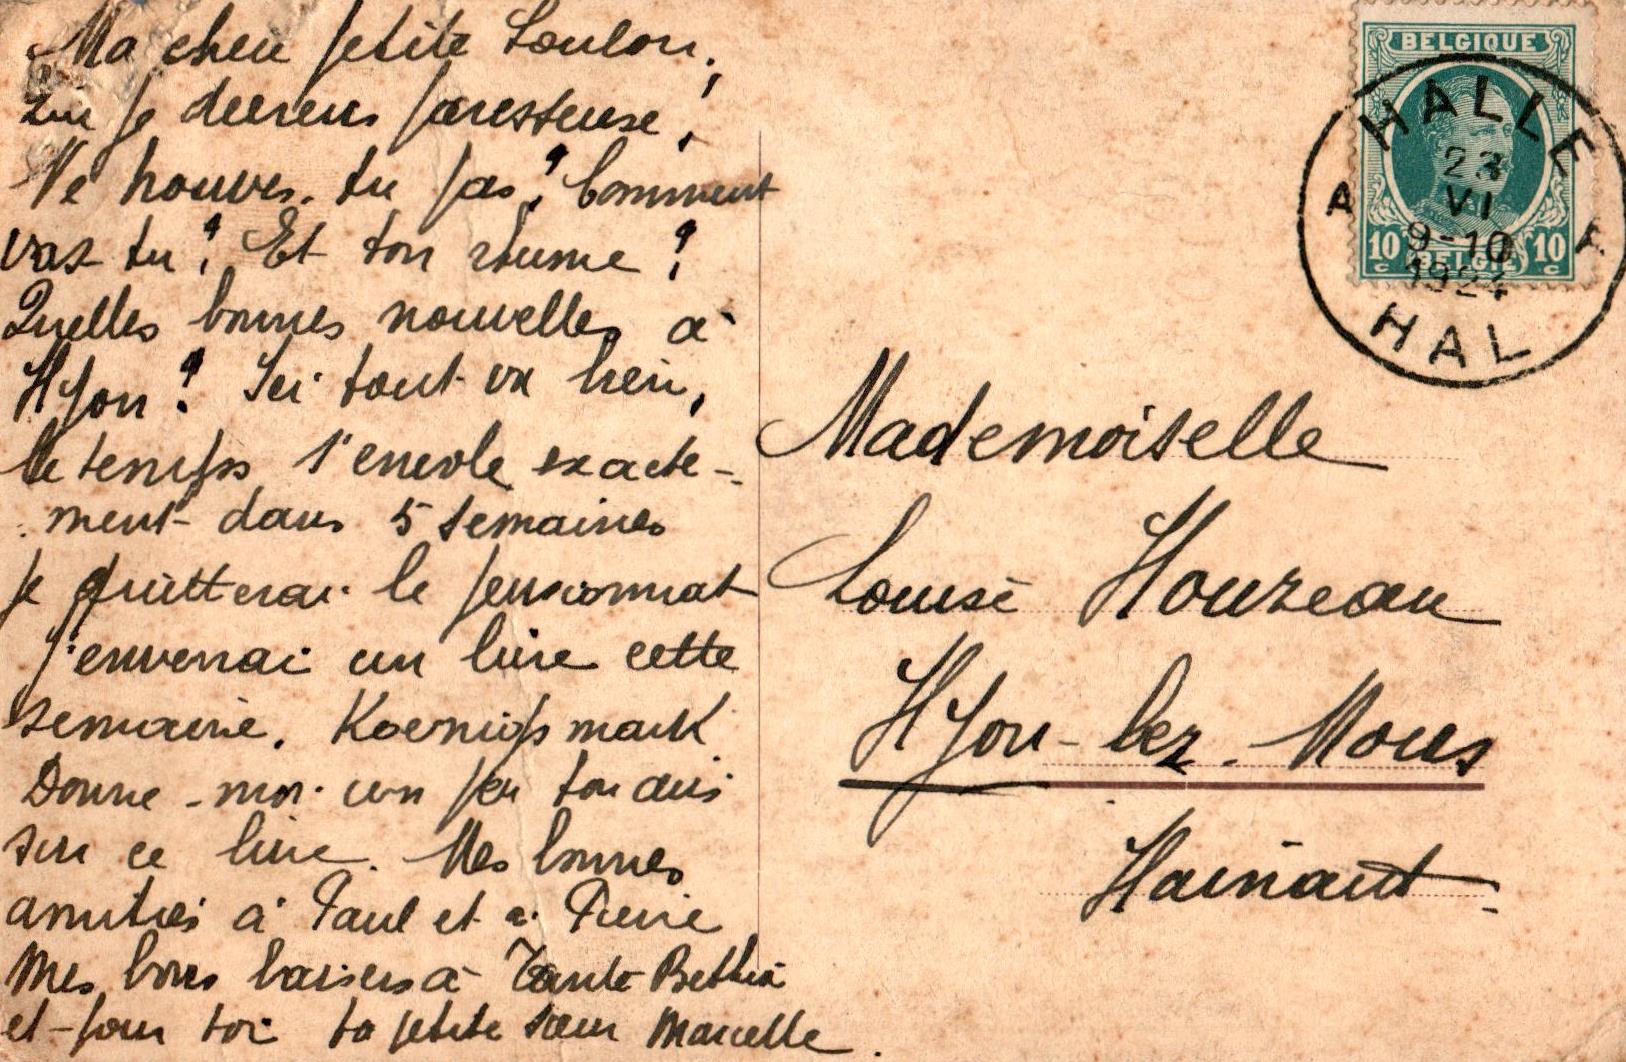 Ma chère petite Loulou,
Que je deviens paresseuse,
Ne trouves-tu pas? Comment
vas-tu? Et ton rhume?
Quelles bonnes nouvelles à
Hyon? Ici tout va bien,
le temps s'envole exacte-
ment dans 5 semaines
je quitterai le pensionnat
J'enverrai un livre cette
semaine. Koenigsmark
Donne-moi un peu ton avis
sur ce livre. Mes bonnes
amitiés à Paul et à Pierre
Mes bons baisers à Tante Bertha
et pour toi ta petite sœur Marcelle.
BELGIQUE
10 c BELGIË 10 c
HALLE
A
23
VI
9-10
1924
HAL
Mademoiselle
Louise Houzeau
Hyon-lez-Mons
Hainaut